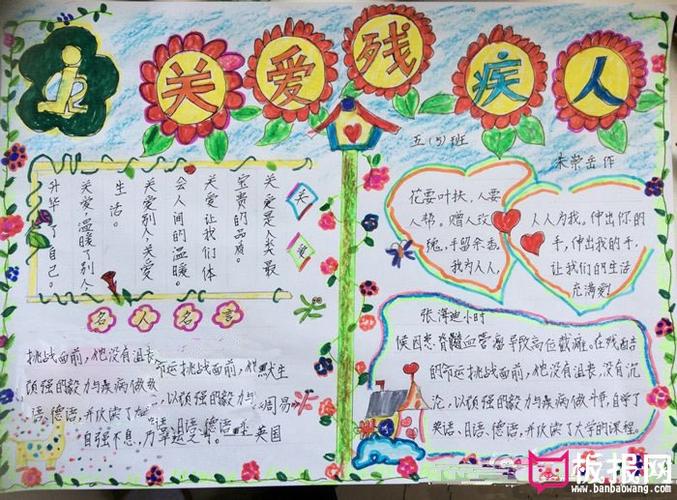 关爱残疾人
五(5)班
朱荣岳作
关爱是人类最
宝贵的品质。
关爱让我们体
会人间的温暖。
关爱别人，关爱
生活。
关爱，温暖了别人，
升华了自己。
关
爱
名人名言
挑战面前，他没有沮丧
命运挑战面前，他
默生
顽强的毅力与疾病做
，以顽强的毅力与
周易
语、德语，并
语、德语，
自强不息，
英国
花要叶扶，人要
人帮。赠人玫
瑰，手留余香。
我为人人，
人人为我。伸出你的
手，伸出我的手，
让我们的生活
充满爱！
张海迪小时
候因患脊髓血管瘤导致高位截瘫。在残酷
的命运挑战面前，他没有沮丧，没有沉
沦，以顽强的毅力与疾病做斗争，自学了
英语、日语、德语，并
了大学的课程。
板报网
www.banbaowang.com